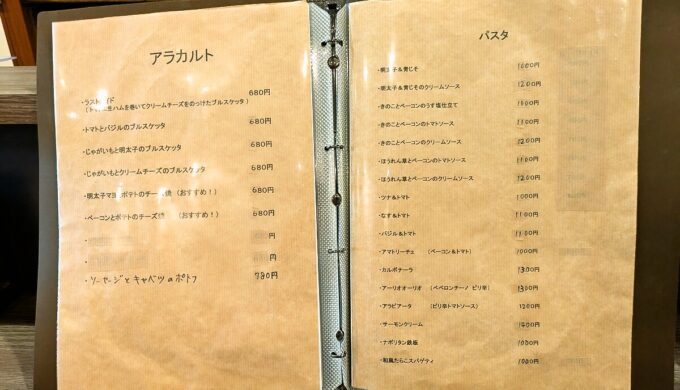 アラカルト
680円
(トマトに生ハムを巻いてクリームチーズをのっけたブルスケッタ)
・トマトとバジルのブルスケッタ 680円
・じゃがいもと明太子のブルスケッタ 680円
・じゃがいもとクリームチーズのブルスケッタ 680円
・明太子マヨとポテトのチーズ焼 (おすすめ!) 680円
・ベーコンとポテトのチーズ焼 (おすすめ!) 680円
円
円
・ソーセージとキャベツのポトフ 780円
パスタ
・明太子&青じそ 1000円
・明太子&青じそのクリームソース 1200円
・きのことベーコンのうす塩仕立て 1000円
・きのことベーコンのトマトソース 1100円
・きのことベーコンのクリームソース 1200円
・ほうれん草とベーコンのトマトソース 1100円
・ほうれん草とベーコンのクリームソース 1200円
・ツナ&トマト 1000円
・なす&トマト 1100円
・バジル&トマト 1100円
・アマトリーチェ (ベーコン&トマト) 1000円
・カルボナーラ 1300円
・アーリオオーリオ (ペペロンチーノ ピリ辛) 1300円
・アラビアータ (ピリ辛トマトソース) 1200円
・サーモンクリーム 1400円
・ナポリタン鉄板 1000円
・和風たらこスパゲティ 1000円